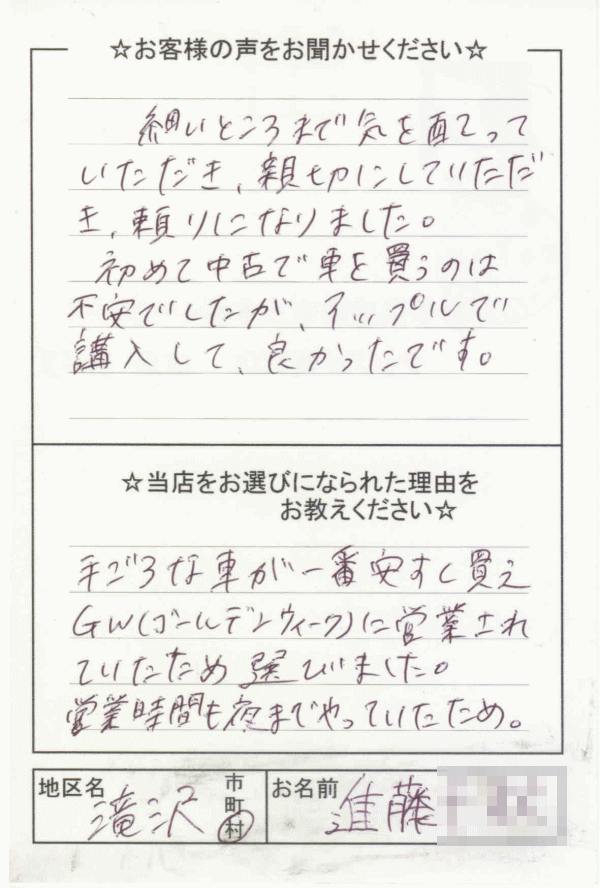 ☆お客様の声をお聞かせください☆
細いところまで気を直てって
いただだき、親切にしていただ
き、頼りになりました。
初めて中古で車を買うのは
不安でしたが、アップルで
講入して、良かったです。
☆当店をお選びになられた理由を
お教えください☆
手ごろな車が一番安すく買え
GW(ゴールデンウィーク)に営業され
ていたため選びました。
営業時間も夜までやっていたため。
地区名 滝沢 市町村 お名前 進藤